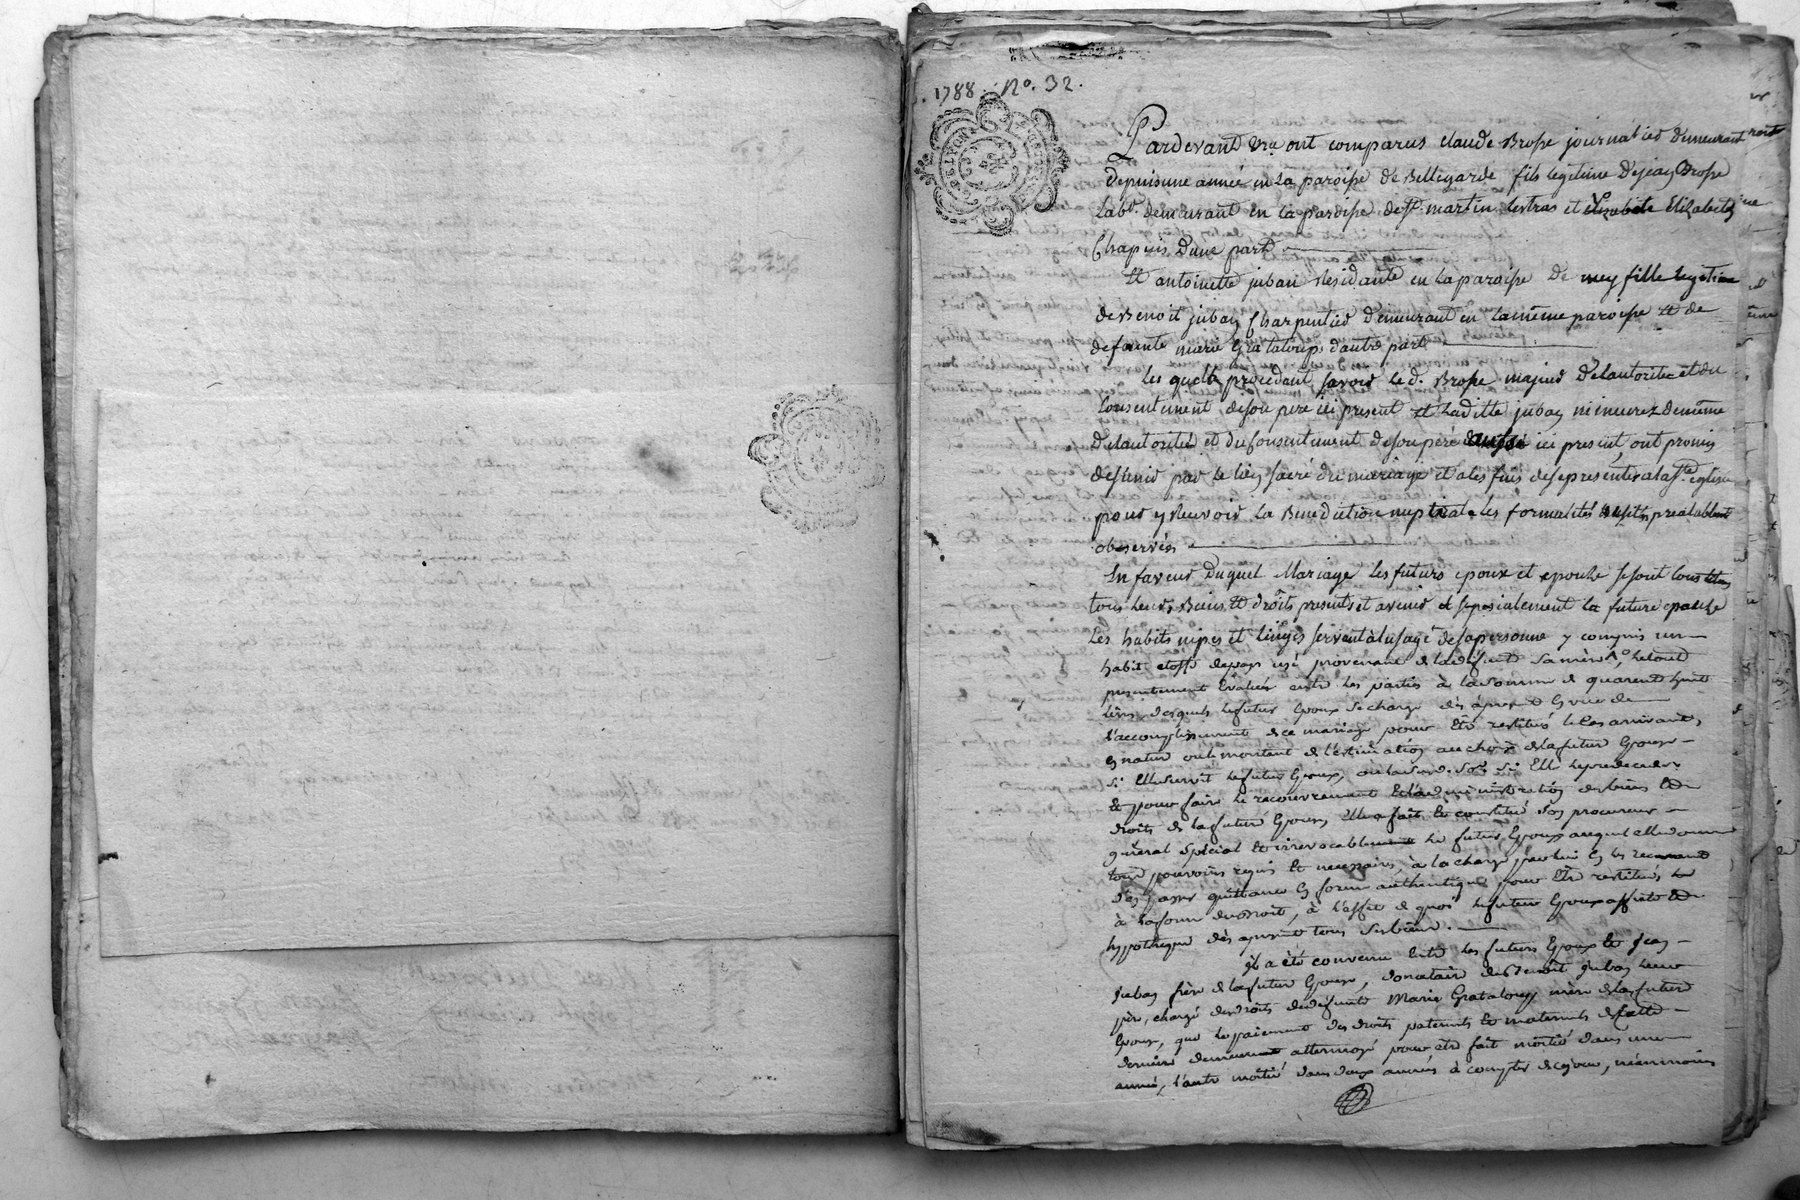 1788. No. 32.
Pardevant Nre ont comparus claude Brosse journalier demeurant
depuis une année en la paroisse de Bellegarde fils legitime de jean Brosse
Labr. demeurant en la paroisse de St. martin lestras et Elizabeth
Chapuis d'une part
Et antoinette juban Residante en la paroisse de mey fille legitime
de Benoit juban Charpentier demeurant en la même paroisse et de
defunte marie Grataloup d'autre part
Les quels procedant savoir le d. Brosse majeur de l'autorité et du
consentement de son pere ici present et laditte juban mineure de même
de l'autorité et du consentement de son pere ici present, ont promis
de s'unir par le lien sacré du mariage et a les fins de se presenter a la Ste. eglise
pour y Recevoir la Benediction nuptiale les formalités prealablement
observées
En faveur Duquel Mariage les futurs epoux et epouse se sont constitués
tous leurs Biens et droits presents et avenir et specialement la future epouse
Les habits nipes et linges servant à l'usage de sa personne y compris un
habit etoffe de pays usé provenant de la défunte sa mère, le tout
presentement évalués entre les parties à la somme de quarente huit
livres, desquels le futur Epoux se charge dès àpresent En vue de
l'accomplissement de ce mariage pour être restitués le Cas arrivant,
En nature ou le montant de l'estimation au choix de la future Epouse
si Elle survit le futur Epoux, ou si Elle le predecede
Et pour faire le recouvrement Et l'administration des biens Et
droits de la future Epouse, Elle a fait Et constitué son procureur
général spécial Et irrévocable le futur Epoux auquel elle donne
tous pouvoirs requis Et necessaires, à la charge par lui En les recevant
d'En passer quittance En forme authentique pour Etre restitués
à la forme du droit, à l'effet de quoi le futur Epoux affecte Et
hypothèque dès àpresent tous ses biens.
Il a été convenu Entre les futurs Epoux Et Jean
Juban frère de la future Epouse, donataire de Benoit Juban leur
père, chargé des droits de defunte Marie Grataloup mère de la future
Epouse, que le paiement des droits paternels Et maternels de cette
derniere demeurent attermoyé pour etre fait moitié dans une
année, l'autre moitié dans deux années à compter de ce jour, néanmoins